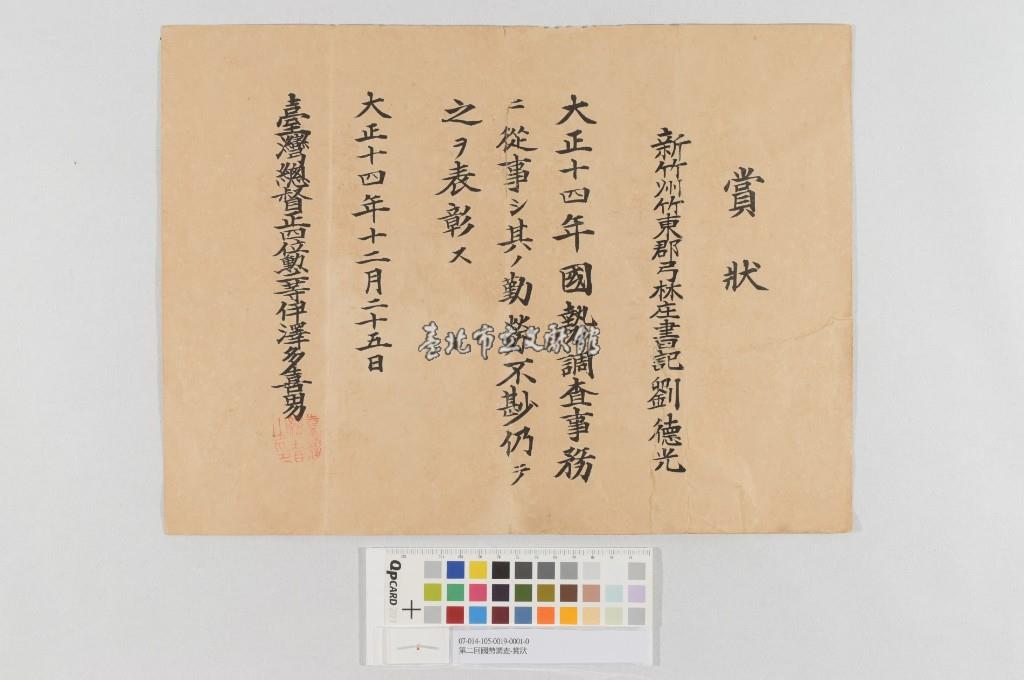 賞狀
新竹州竹東郡弓林庄書記劉德光
大正十四年國勢調查事務
ニ從事シ其ノ勤勞不尠仍テ
之ヲ表彰ス
大正十四年十二月二十五日
臺灣總督正四位勳一等伊澤多喜男
臺北市立文獻館
QPCARD
07-014-105-0019-0001-0
第二回國勢調查-賞狀